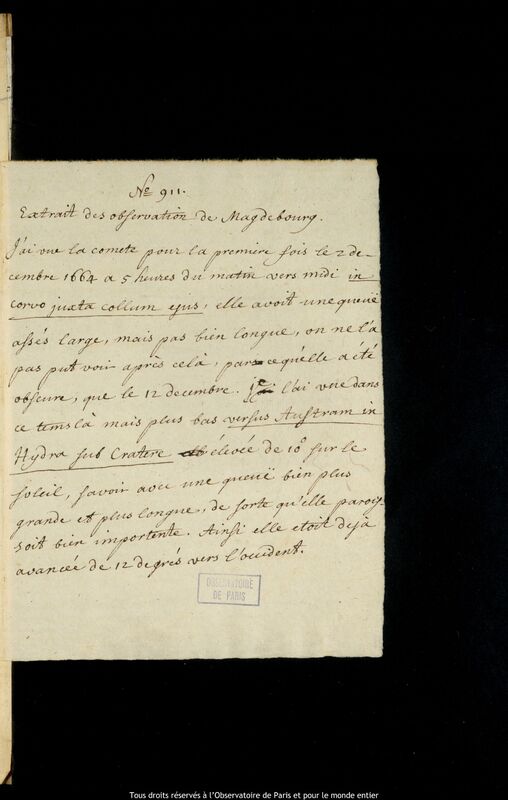 No 911.
Extrait des observation de Magdebourg.
J'ai vue la comete pour la premiere fois le 2 de-
cembre 1664 a 5 heures du matin vers midi in
corvo juxta collum ejus, elle avoit une queuë
assés large, mais pas bien longue, on ne l'a
pas put voir après celà, parce qu'elle a été
obscure, que le 12 decembre. Je l'ai vue dans
ce tems là mais plus bas versus Austram in
Hydra sub Cratere élévée de 10° sur le
soleil, savoir avec une queuë bien plus
grande et plus longue, de sorte qu'elle parois-
soit bien importente. Ainsi elle etoit dejà
avancée de 12 degrés vers l'occident.
OBSERVATOIRE
DE PARIS
Tous droits réservés à l'Observatoire de Paris et pour le monde entier